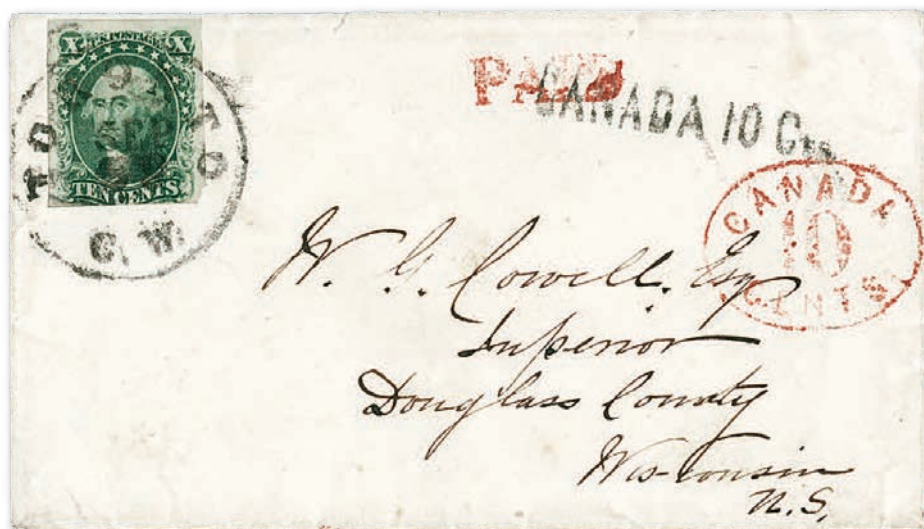 X U.S. POSTAGE X
TEN CENTS
TORONTO
C.W.
PAID
CANADA 10 Cts.
CANADA
10
CENTS
W. G. Cowell. Esq
Superior
Douglass County
Wis-consin
U.S.